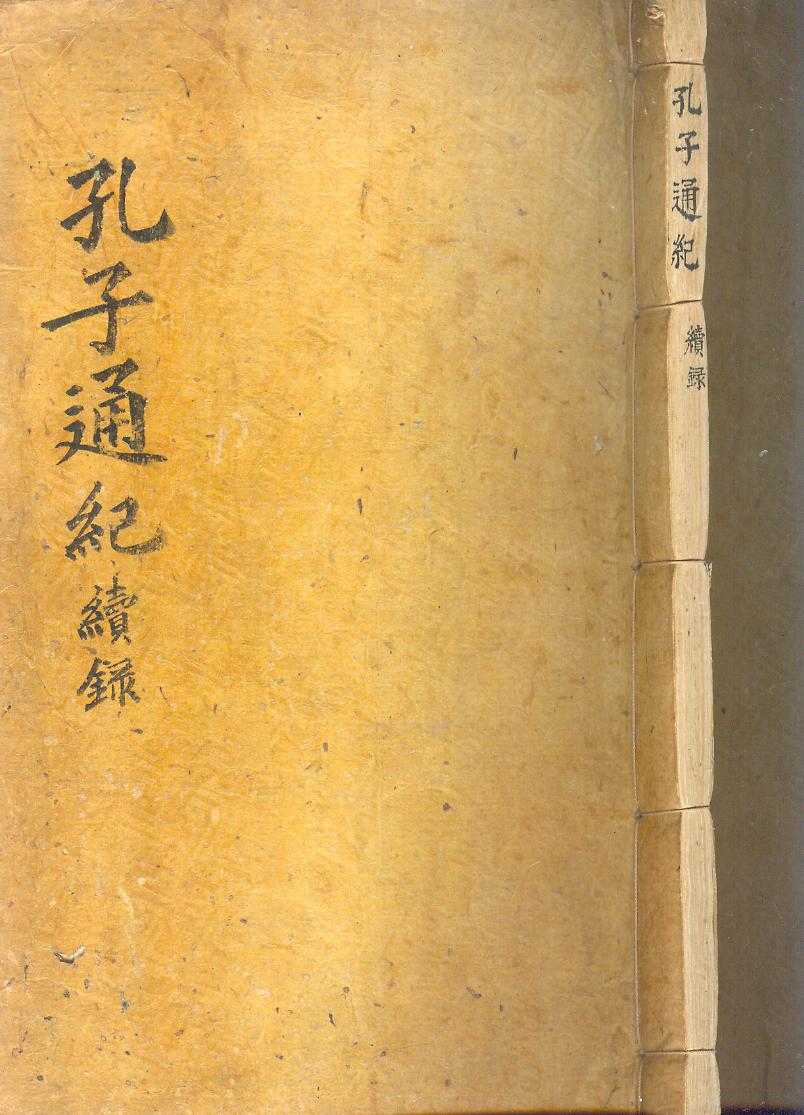 孔子通紀續録
孔子通紀
續録